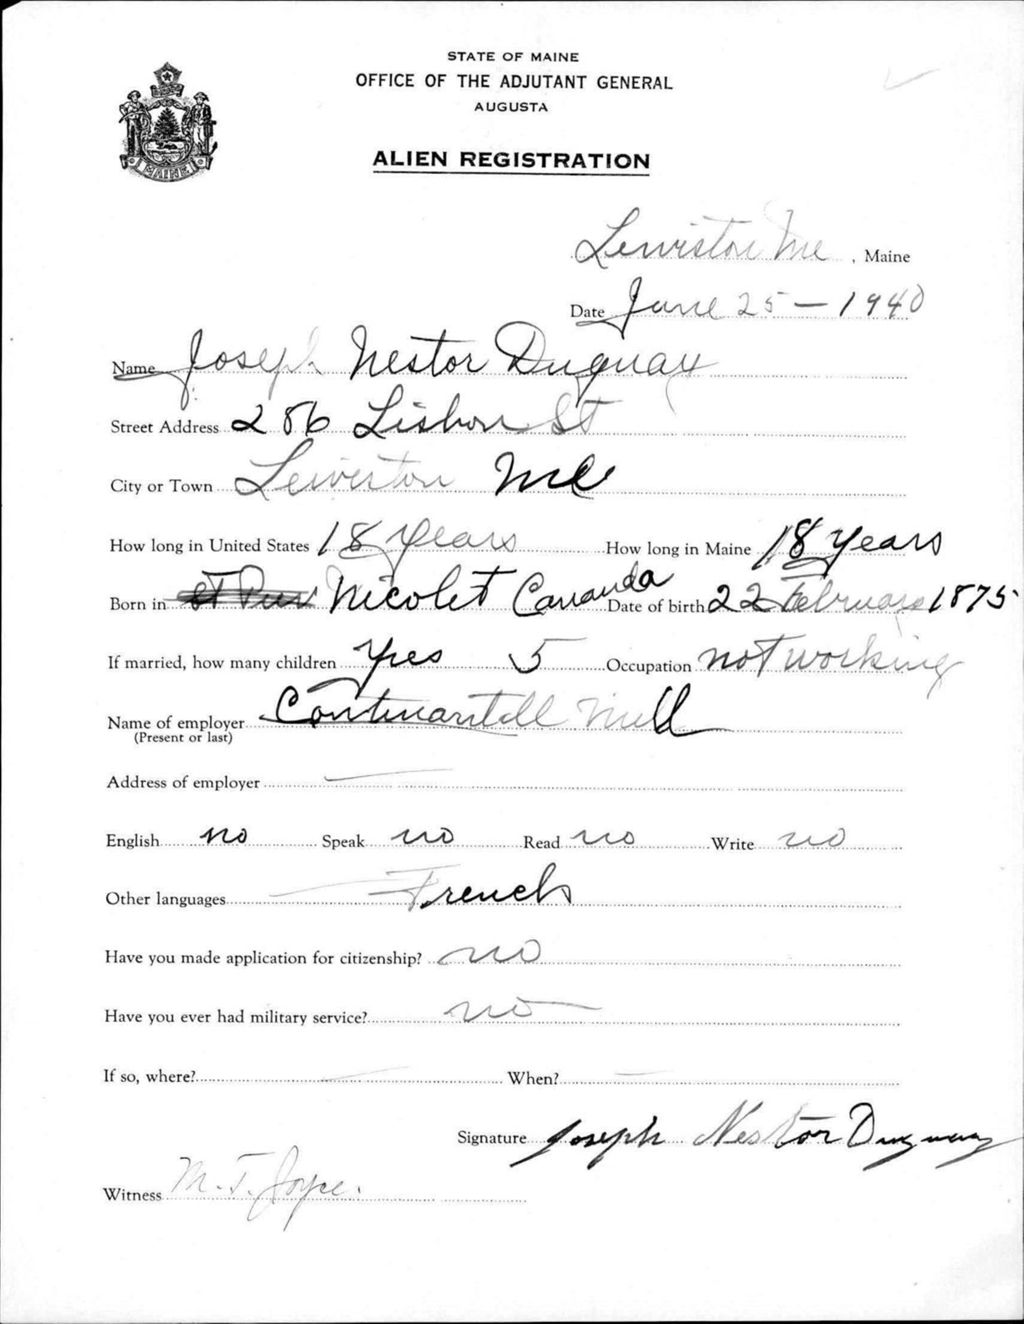 STATE OF MAINE
OFFICE OF THE ADJUTANT GENERAL
AUGUSTA
ALIEN REGISTRATION
MAINE
Lewiston Me, Maine
Date June 25 - 1940
Name Joseph Nestor Duguay
Street Address 286 Lisbon St
City or Town Lewiston Me
How long in United States 18 Years How long in Maine 18 Years
Born in Nicolet Cananda Date of birth 22 February 1875
If married, how many children Yes 5 Occupation not working
Name of employer Continantell Mill
(Present or last)
Address of employer —
English no Speak no Read no Write no
Other languages French
Have you made application for citizenship? no
Have you ever had military service? no
If so, where? — When? —
Signature Joseph Nestor Duguay
Witness M. T. Joyce.